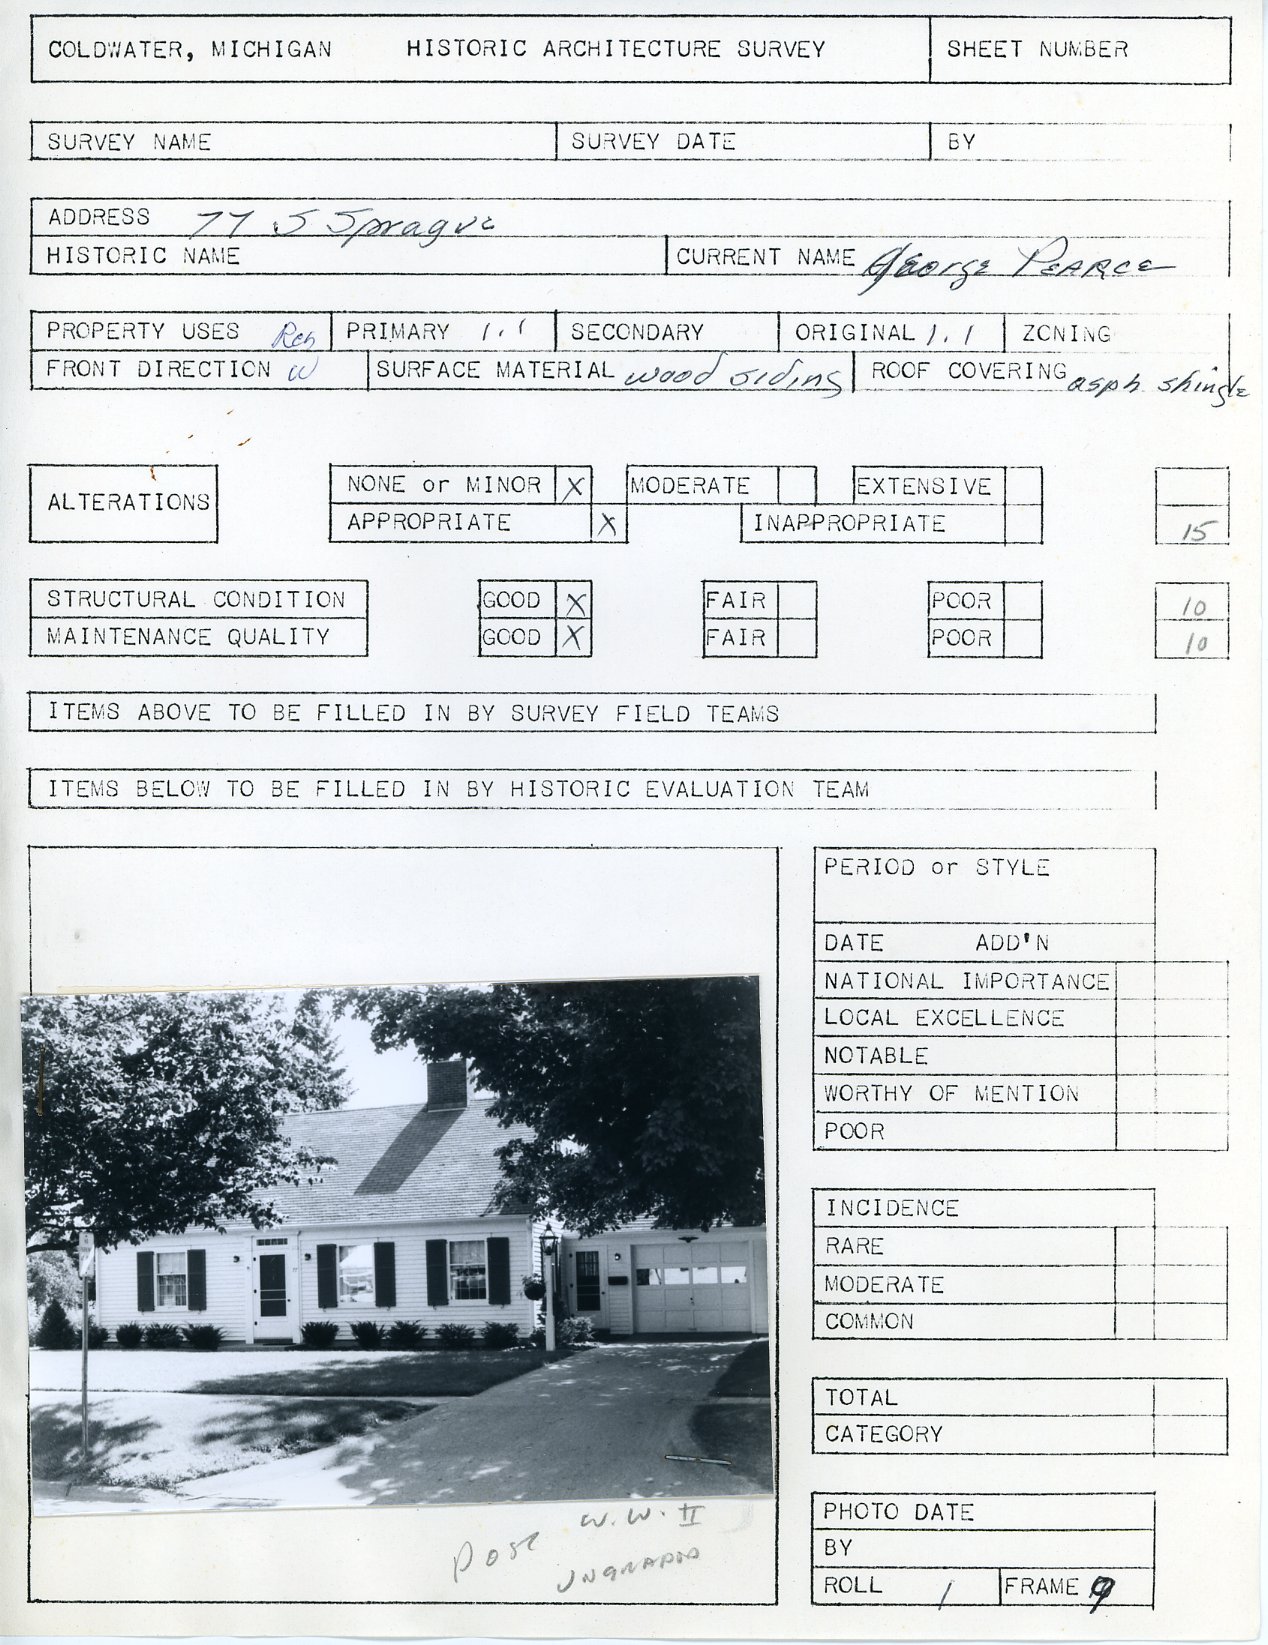 COLDWATER, MICHIGAN HISTORIC ARCHITECTURE SURVEY SHEET NUMBER
SURVEY NAME SURVEY DATE BY
ADDRESS 77 S Sprague
HISTORIC NAME CURRENT NAME George PEARCE
PROPERTY USES Res PRIMARY 1.1 SECONDARY ORIGINAL 1.1 ZONING
FRONT DIRECTION W SURFACE MATERIAL wood siding ROOF COVERING asph shingle
ALTERATIONS NONE or MINOR X MODERATE EXTENSIVE
APPROPRIATE X INAPPROPRIATE 15
STRUCTURAL CONDITION GOOD X FAIR POOR 10
MAINTENANCE QUALITY GOOD X FAIR POOR 10
ITEMS ABOVE TO BE FILLED IN BY SURVEY FIELD TEAMS
ITEMS BELOW TO BE FILLED IN BY HISTORIC EVALUATION TEAM
PERIOD or STYLE
DATE ADD'N
NATIONAL IMPORTANCE
LOCAL EXCELLENCE
NOTABLE
WORTHY OF MENTION
POOR
INCIDENCE
RARE
MODERATE
COMMON
TOTAL
CATEGORY
Post W.W. II
UNGRADED
PHOTO DATE
BY
ROLL 1 FRAME 9